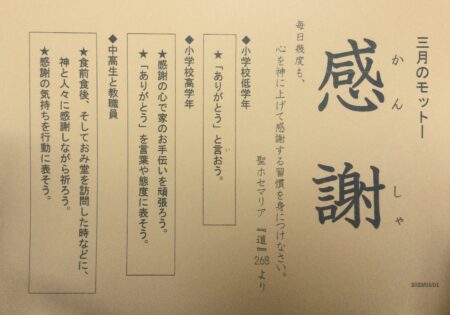 三月のモットー
感謝
かんしゃ
毎日幾度も、
心を神に上げて感謝する習慣を身につけなさい。
聖ホセマリア 『道』268 より
◆小学校低学年
★「ありがとう」と言おう。
い
◆小学校高学年
★感謝の心で家のお手伝いを頑張ろう。
★「ありがとう」を言葉や態度に表そう。
◆中高生と教職員
★食前食後、そしておみ堂を訪問した時などに、
神と人々に感謝しながら祈ろう。
★感謝の気持ちを行動に表そう。